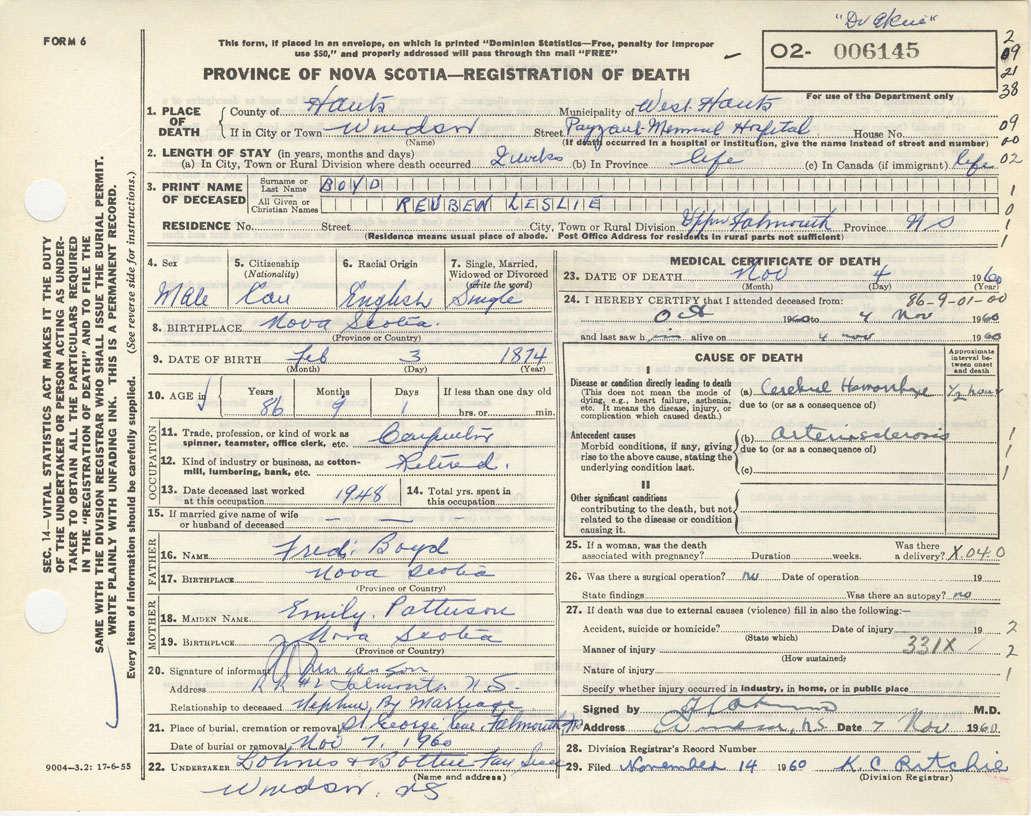 FORM 6
This form, if placed in an envelope, on which is printed "Dominion Statistics—Free, penalty for improper
use $50," and properly addressed will pass through the mail "FREE"
O2- 006145
For use of the Department only
2
09
21
38
09
00
02
PROVINCE OF NOVA SCOTIA—REGISTRATION OF DEATH
1. PLACE OF DEATH
County of Hants Municipality of West Hants
If in City or Town Windsor Street Payzant Memorial Hospital House No.
(Name) (If death occurred in a hospital or institution, give the name instead of street and number)
2. LENGTH OF STAY (in years, months and days)
(a) In City, Town or Rural Division where death occurred 2 weeks (b) In Province life (c) In Canada (if immigrant) life
3. PRINT NAME OF DECEASED
Surname or Last Name BOYD
All Given or Christian Names REUBEN LESLIE
1
0
1
1
RESIDENCE No. Street City, Town or Rural Division Upper Falmouth Province NS
(Residence means usual place of abode. Post Office Address for residents in rural parts not sufficient)
SEC. 14—VITAL STATISTICS ACT MAKES IT THE DUTY
OF THE UNDERTAKER OR PERSON ACTING AS UNDER-
TAKER TO OBTAIN ALL THE PARTICULARS REQUIRED
IN THE "REGISTRATION OF DEATH" AND TO FILE THE
SAME WITH THE DIVISION REGISTRAR WHO SHALL ISSUE THE BURIAL PERMIT.
WRITE PLAINLY WITH UNFADING INK. THIS IS A PERMANENT RECORD.
Every item of information should be carefully supplied. (See reverse side for instructions.)
4. Sex Male
5. Citizenship (Nationality) Can
6. Racial Origin English
7. Single, Married, Widowed or Divorced (write the word) Single
8. BIRTHPLACE Nova Scotia.
(Province or Country)
9. DATE OF BIRTH Feb 3 1874
(Month) (Day) (Year)
10. AGE in Years 86 Months 9 Days 1 If less than one day old
hrs. or min.
OCCUPATION
11. Trade, profession, or kind of work as
spinner, teamster, office clerk, etc. Carpenter
12. Kind of industry or business, as cotton-
mill, lumbering, bank, etc. Retired.
13. Date deceased last worked
at this occupation 1948
14. Total yrs. spent in
this occupation
15. If married give name of wife
or husband of deceased — — —
FATHER
16. NAME Fred. Boyd
17. BIRTHPLACE Nova Scotia
(Province or Country)
MOTHER
18. MAIDEN NAME Emily Patterson
19. BIRTHPLACE Nova Scotia
(Province or Country)
20. Signature of informant
Address RR #2 Falmouth N.S.
Relationship to deceased Nephew By Marriage
21. Place of burial, cremation or removal St George Falmouth NS
Date of burial or removal Nov 7, 1960
22. UNDERTAKER
(Name and address)
Windsor, NS
9004—3.2: 17-6-55
MEDICAL CERTIFICATE OF DEATH
23. DATE OF DEATH Nov 4 1960
(Month) (Day) (Year)
24. I HEREBY CERTIFY that I attended deceased from: 86-9-01-00
Oct 1960 to 4 Nov 1960
and last saw him alive on 4 nov 1960
CAUSE OF DEATH
Approximate interval between onset and death
I
Disease or condition directly leading to death
(This does not mean the mode of
dying, e.g., heart failure, asthenia,
etc. It means the disease, injury, or
complication which caused death.)
(a) Cerebral Hemorrhage ½ hour
due to (or as a consequence of)
Antecedent causes
Morbid conditions, if any, giving
rise to the above cause, stating the
underlying condition last.
(b) Arteriosclerosis
due to (or as a consequence of)
(c)
1
1
1
II
Other significant conditions
contributing to the death, but not
related to the disease or condition
causing it.
25. If a woman, was the death
associated with pregnancy? Duration weeks. Was there
a delivery? X.040
26. Was there a surgical operation? no Date of operation 19
State findings Was there an autopsy? no
27. If death was due to external causes (violence) fill in also the following:—
Accident, suicide or homicide? Date of injury 19 2
(State which)
Manner of injury 331X 2
(How sustained)
Nature of injury 1
Specify whether injury occurred in industry, in home, or in public place
Signed by M.D.
Address Windsor, N.S. Date 7 Nov 1960.
28. Division Registrar's Record Number
29. Filed November 14 1960 K C Ritchie
(Division Registrar)